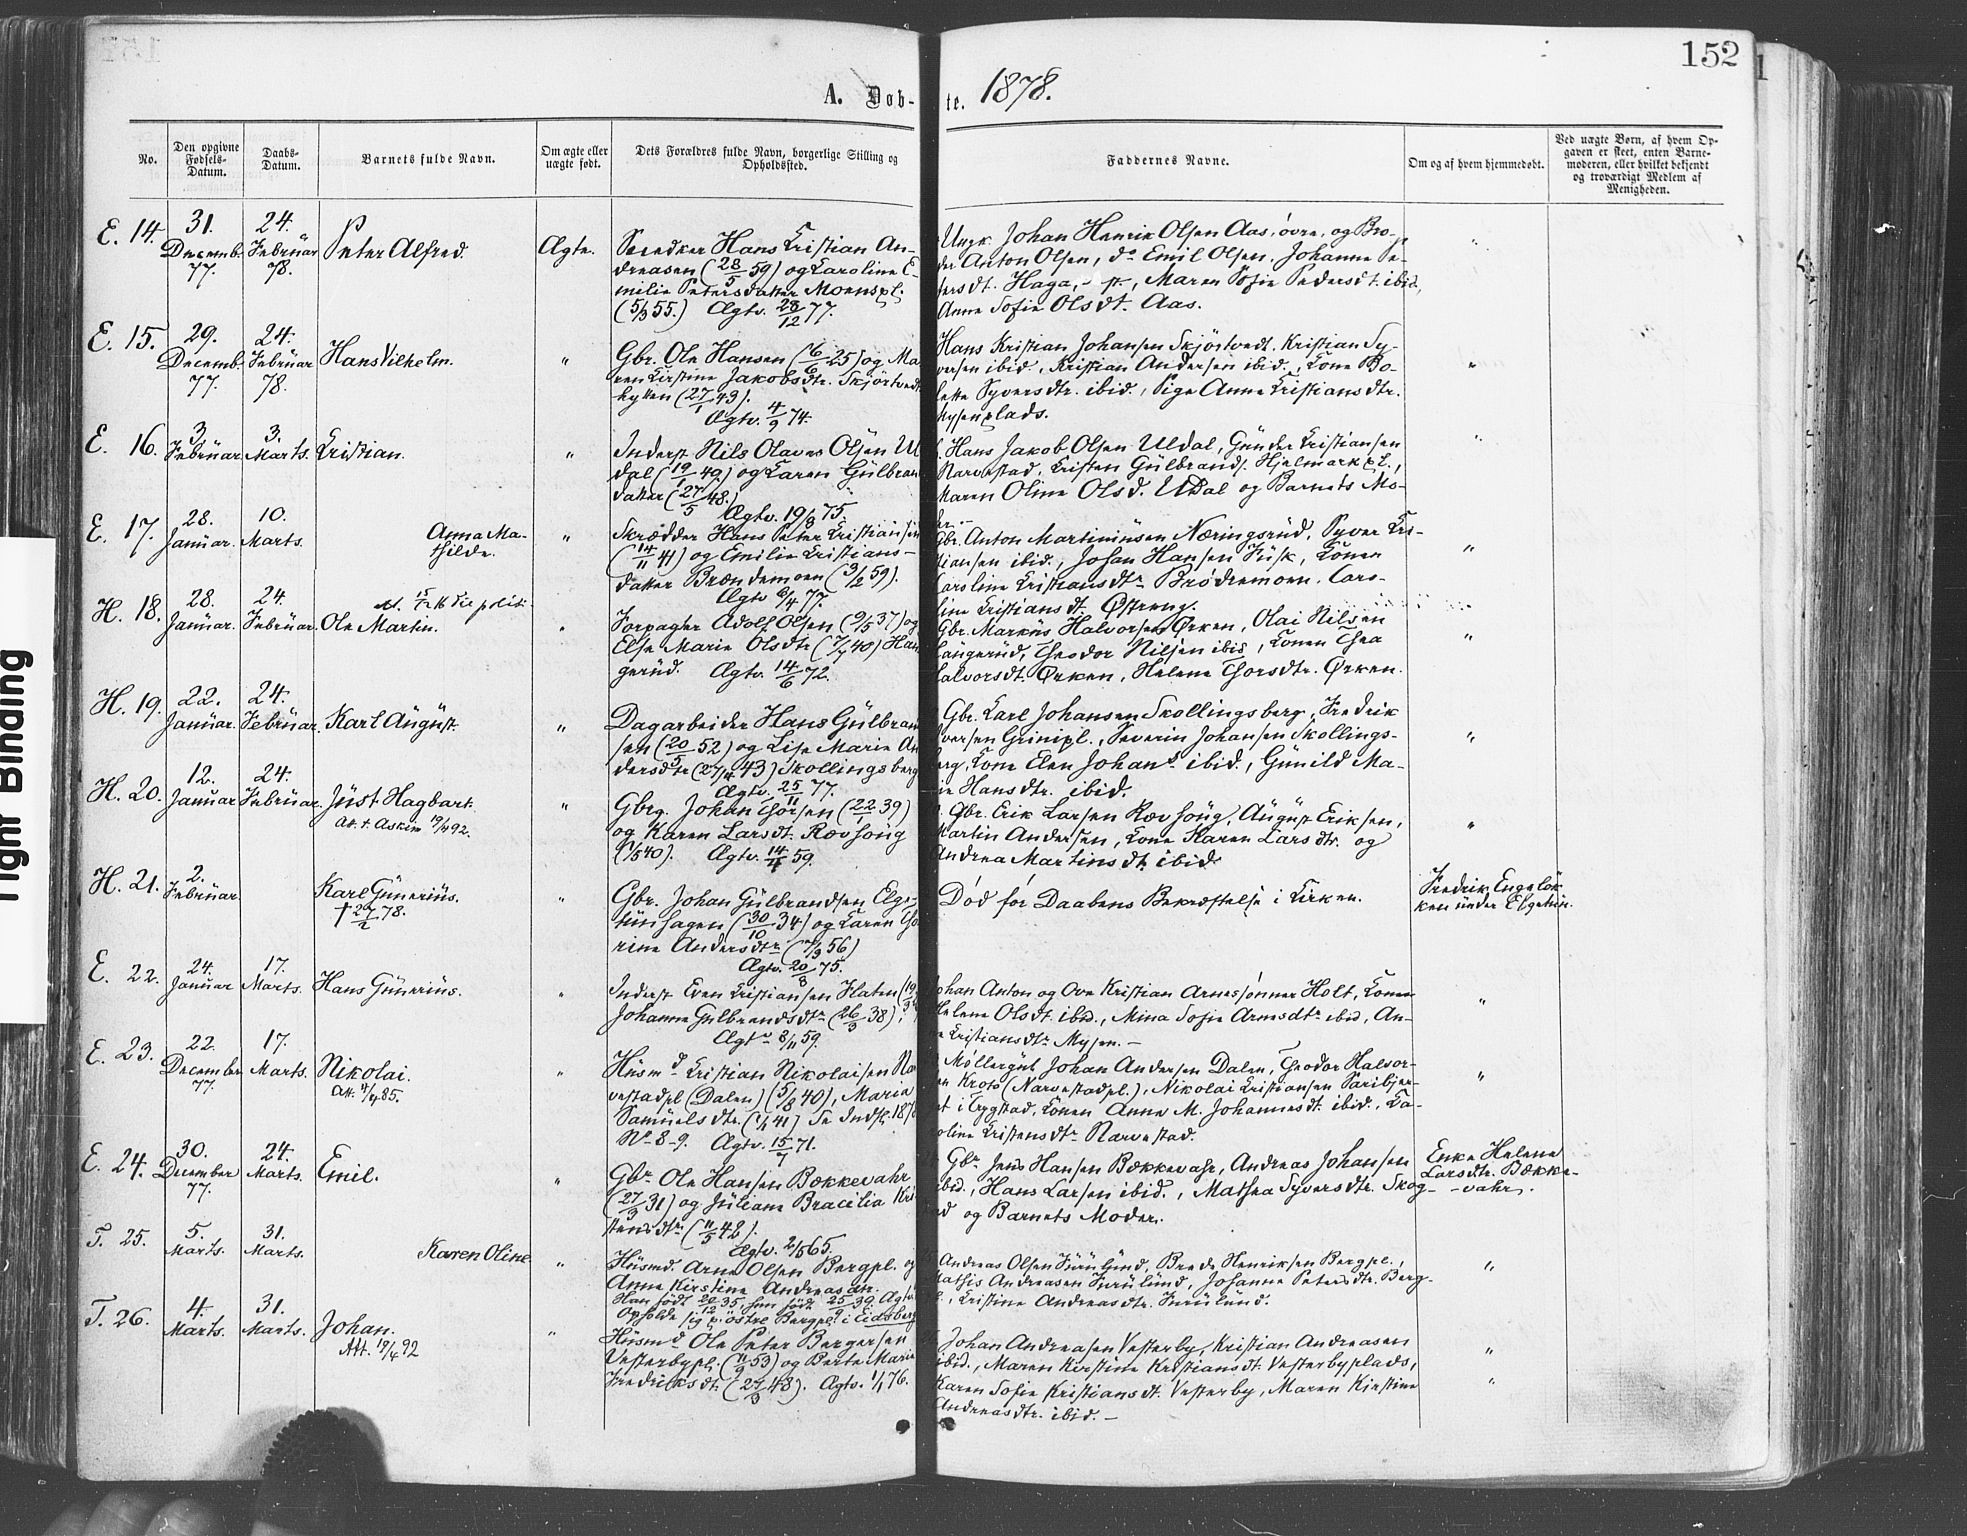 152
A. Døb-te. 1878.
No.
Den opgivne Fødsels-Datum.
Daabs-Datum.
Barnets fulde Navn.
Om ægte eller uægte født.
Dets Forældres fulde Navn, borgerlige Stilling og Opholdssted.
Faddernes Navne.
Om og af hvem hjemmedøbt.
Ved uægte Børn, af hvem Opgaven er skeet, enten Barnemoderen, eller hvilket bekjendt og troværdigt Medlem af Menigheden.
E. 14. 31. Decemb. 77. 24. Februar 78. Peter Alfred. Ægte.
Hans Kristian An-
dreasen (28/5 59) og Karoline E-
milie Petersdatter Moenspl.
(5/3 55.) Ægtv. 28/12 77.
Ungk. Johan Henrik Olsen Aas, øvre, og Bro-
der Anton Olsen, do Emil Olsen. Johanne Pe-
dersdt. Haga, Maren Sofie Pedersdt. ibid,
Anne Sofie Olsdt. Aas.
E. 15. 29. Decemb. 77. 24. Februar 78. Hans Vilhelm. "
Gbr. Ole Hansen (16/6 25) og Ma
ren Kirstine Jakobsdtr. Skjörtvedt
hytten (27/1 43).
Ægtv. 4/9 74.
Hans Kristian Johansen Skjörtvedt. Kristian Sy-
versen ibid, Kristian Andersen ibid., Kone Bo-
lette Syversdtr. ibid., Pige Anne Kristiansdtr.
Mysenplads.
E. 16. 3. Februar. 3. Marts. Kristian. "
Inderst Nils Olaves Olsen Ul
dal (19/1 49) og Karen Gulbran
datter (27/5 48.)
Ægtv. 19/8 75.
Hans Jakob Olsen Uldal, Gunder Kristiansen
Narvestad, Kristen Gulbrands. Hjelmarkpl.,
Maren Oline Olsd. Uldal og Barnets Mo-
der.-
E. 17. 28. Januar. 10. Marts. Anna Ma-
thilde. "
Skrædder Hans Peter Kristiansen
(14/11 41) og Emilie Kristians-
datter Brændemoen (3/2 59).
Ægtv 6/4 77.
Gbr. Anton Martiniusen Næringsrud, Syver Kri-
stiansen ibid., Johan Hansen Fusk, Konen
Karoline Kristiansdtr Brødremoen. Karo-
line Kristiansdt. Østreng.
H. 18. 28. Januar. 24. Februar. Ole Martin. "
Forpagter Adolf Olsen (9/5 37) og
Else Marie Olsdtr (7/7 40) Han
gerud. Ægtv. 14/6 72.
Gbr. Markus Halvorsen Ørken, Olai Nilsen
Hangerud, Theodor Nilsen ibid, Konen Thea
Halvorsdt. Ørken, Helene Thorsdtr. Ørken.
H. 19. 22. Januar. 24. Februar. Karl August. "
Dagarbeider Hans Gulbran
sen (20/5 52) og Lise Marie An
dersdtr (27/4 43) Skollingsberg
Ægtv. 25/11 77.
Gbr. Karl Johansen Skollingsberg, Fredrik
Iversen Grinipl., Severin Johansen Skollings-
berg, Kone Elen Johans. ibid., Gunild Ma-
rie Hansdtr. ibid.
H. 20. 12. Januar. 24. Februar. Just Hagbart. "
Att. t. Askim 19/4 92.
Gbrg. Johan Thorsen (22/1 39)
og Karen Larsdt. Rævhoug
(1/5 40). Ægtv. 14/4 59.
Gbr. Erik Larsen Rævhoug, August Eriksen,
Martin Andersen, Kone Karen Larsdtr. og
Andrea Martinsdt. ibid.
H. 21. 2. Februar. Karl Gunerius. "
† 27/2 78.
Gbr. Johan Gulbrandsen Elge-
tunhagen (30/10 34) og Karen Tho
rine Andersdtr. (7/3 56)
Ægtv. 20/8 75.
Död för Daabens Bekræftelse i Kirken.
Fredrik Engelök-
ken under Elgetun.
E. 22. 24. Januar 17. Marts. Hans Gunerius. "
Inderst Even Kristiansen Flaten
Johanne Gulbrandsdtr (26/3 38);
Ægtv 8/11 59.
Johan Anton og Ove Kristian Arnesönner Holt, Konen
Helene Olsdt. ibid., Mina Sofie Arnesdtr ibid, An-
ne Kristiansdtr Mysen.-
E. 23. 22. December 77. 17. Marts. Nikolai. "
Att. 4/4 85.
Husmd Kristian Nikolaisen Nar
vestadpl (Dalen) (5/8 40), Maria
Samuelsdtr. (1/1 41) Se Indfl. 187
No 8-9. Ægtv. 15/7 71.
Møllergut Johan Andersen Dalen, Theodor Halvor-
sen Kroto (Narvestadpl.), Nikolai Kristiansen Saribjer-
get i Trygstad, Konen Anne M. Johannesdt. ibid., Ka-
roline Kristensdtr Narvestad.
E. 24. 30. December 77. 24. Marts. Emil. "
Gbr Ole Hansen Bækkevahr
(27/3 31) og Juliane Bracilia Kri
stensdtr. (11/5 42).
Ægtv. 2/5 65.
Gbr Jens Hansen Bækkevahr, Andreas Johansen
ibid., Hans Larsen ibid., Mathea Syversdtr. Skog-
og Barnets Moder.
Enke Helene
Larsdtr. Bække-
vahr.
T. 25. 5. Marts. 31. Marts. Karen Oline "
Husmd. Arne Olsen Bergpl. og
Anne Kirstine Andreasdtr.
Han født 20/12 35, hun født 25/9 39 Ægtv
Opholde sig p. östre Bergpl. i Eidsberg
Andreas Olsen Furulund, Brede Henriksen Bergpl.,
Mathis Andreasen Furulund, Johanne Petersdtr. Berg-
pl., Kristine Andreasdtr. Furulund.
T. 26. 4. Marts. 31. Marts. Johan. "
Att. 19/4 92
Husmd Ole Peter Bergersen
Vesterbypl. (11/9 53) og Berte Marie
Fredriksdt. (27/3 48). Ægtv. 1/1 76.
Johan Andreasen Vesterby, Kristian Andreasen
ibid., Maren Kirstine Kristiansdt. Vesterbyplads,
Karen Sofie Kristiansdt. Vesterby, Maren Kirstine
Andreasdtr. ibid.-
Tight Binding